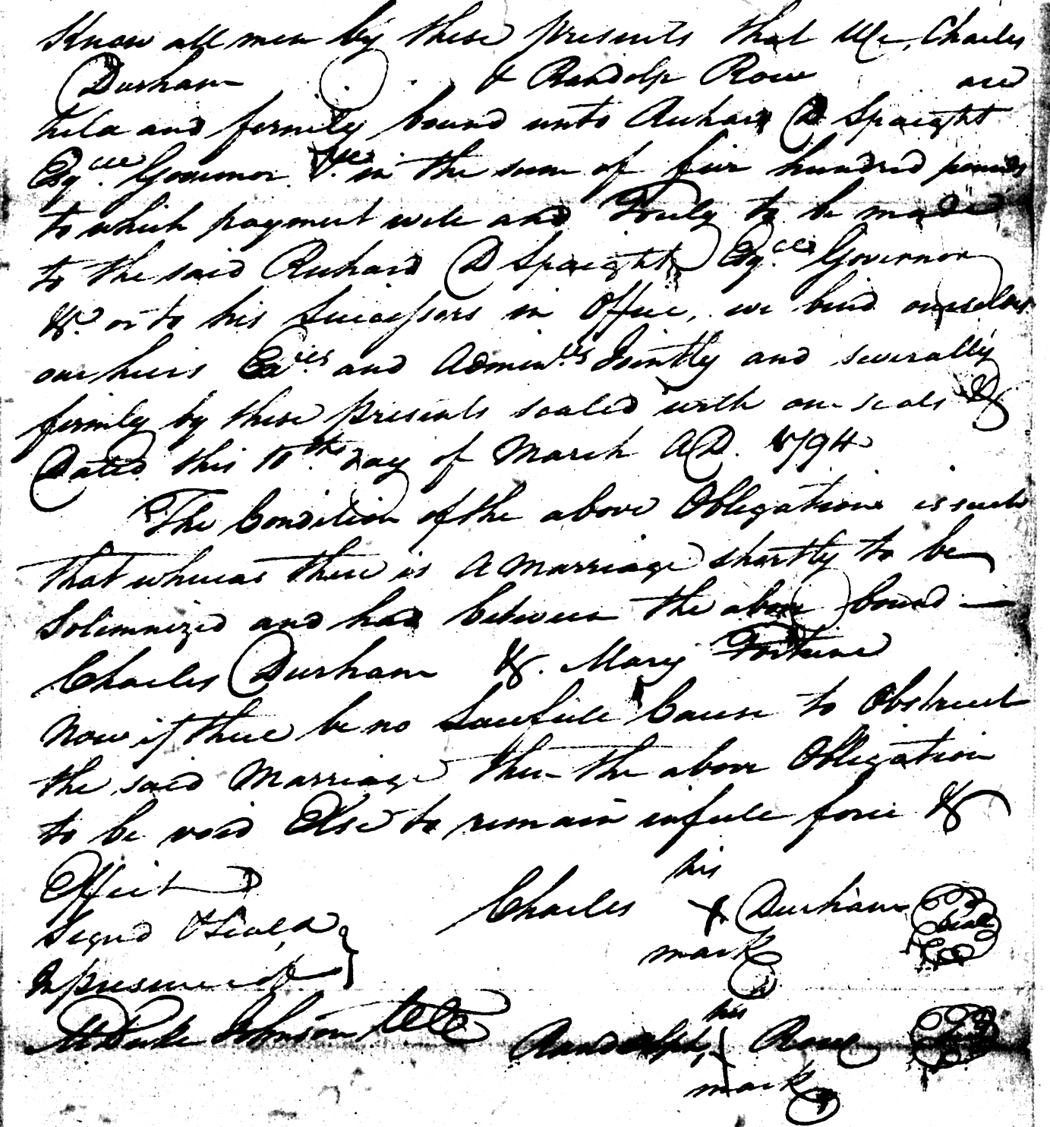 Know all men by these presents that We, Charles
Durham & Randolp Rowe are
held and firmly bound unto Richard D Spaight
Esqree Governor &c in the sum of five hundred pounds
to which payment well and Truly to be made
to the said Richard D Spaight Esqree Governor
&c or to his Successors in Office, we bind ourselves
our heirs Exres and Adminrs Jointly and severally
firmly by these presents sealed with our seals &
Dated this 10th day of March AD. 1794
The Condition of the above Obligation is such
that whereas there is a Marriage shortly to be
Solemnized and had between the above bound —
Charles Durham &. Mary Fortune
Now if there be no Lawfull Cause to Obstruct
the said Marriage then the above Obligation
to be void Else to remain in full force &
Effect
Signd & Seald
In presence of
his
Charles X Durham Seal
mark
Johnson
his
Randolph Rowe
mark